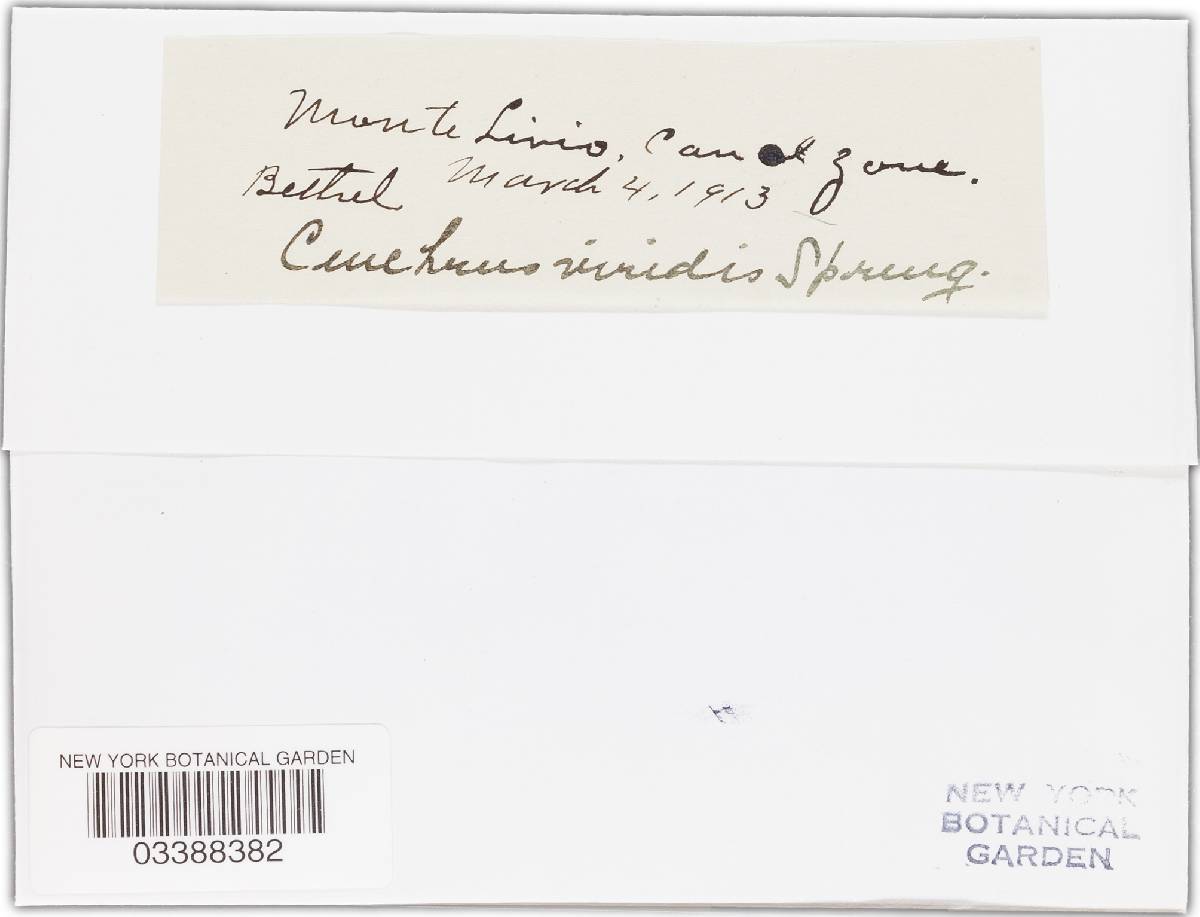 Monte Livio, Canal Zone.
Bethel March 4, 1913
Cenchrus viridis Spreng.
NEW YORK BOTANICAL GARDEN
03388382
NEW YORK
BOTANICAL
GARDEN